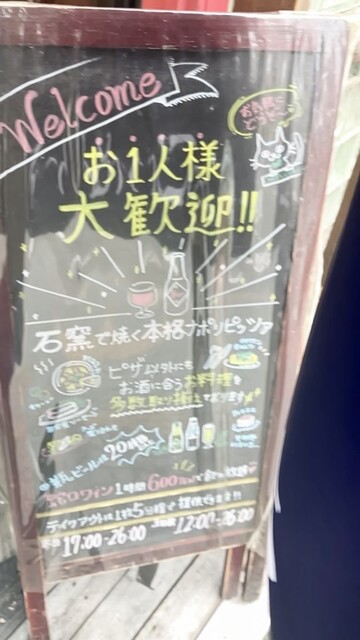 Welcome
お気軽に
どうぞ
お1人様
大歓迎!!
石窯で焼く本格ナポリピッツァ
ピザ以外にも
お酒に合うお料理を
多数取り揃えております
瓶ビールは
90種
1時間600
テイクアウトは1枚5分程で提供できます!!
17:00-26:00
12:00-26:00